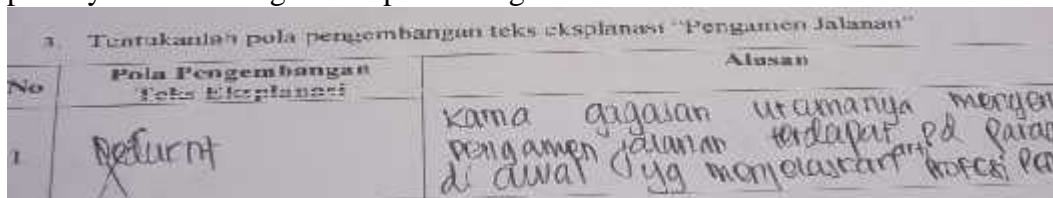 3. Tentukanlah pola pengembangan teks eksplanasi "Pengamen Jalanan"
No Pola Pengembangan Teks Eksplanasi Alasan
1
karna gagasan utamanya mengen
pengamen jalanan terdapat pd parag
di awal yg menjelaskan arti profesi pen